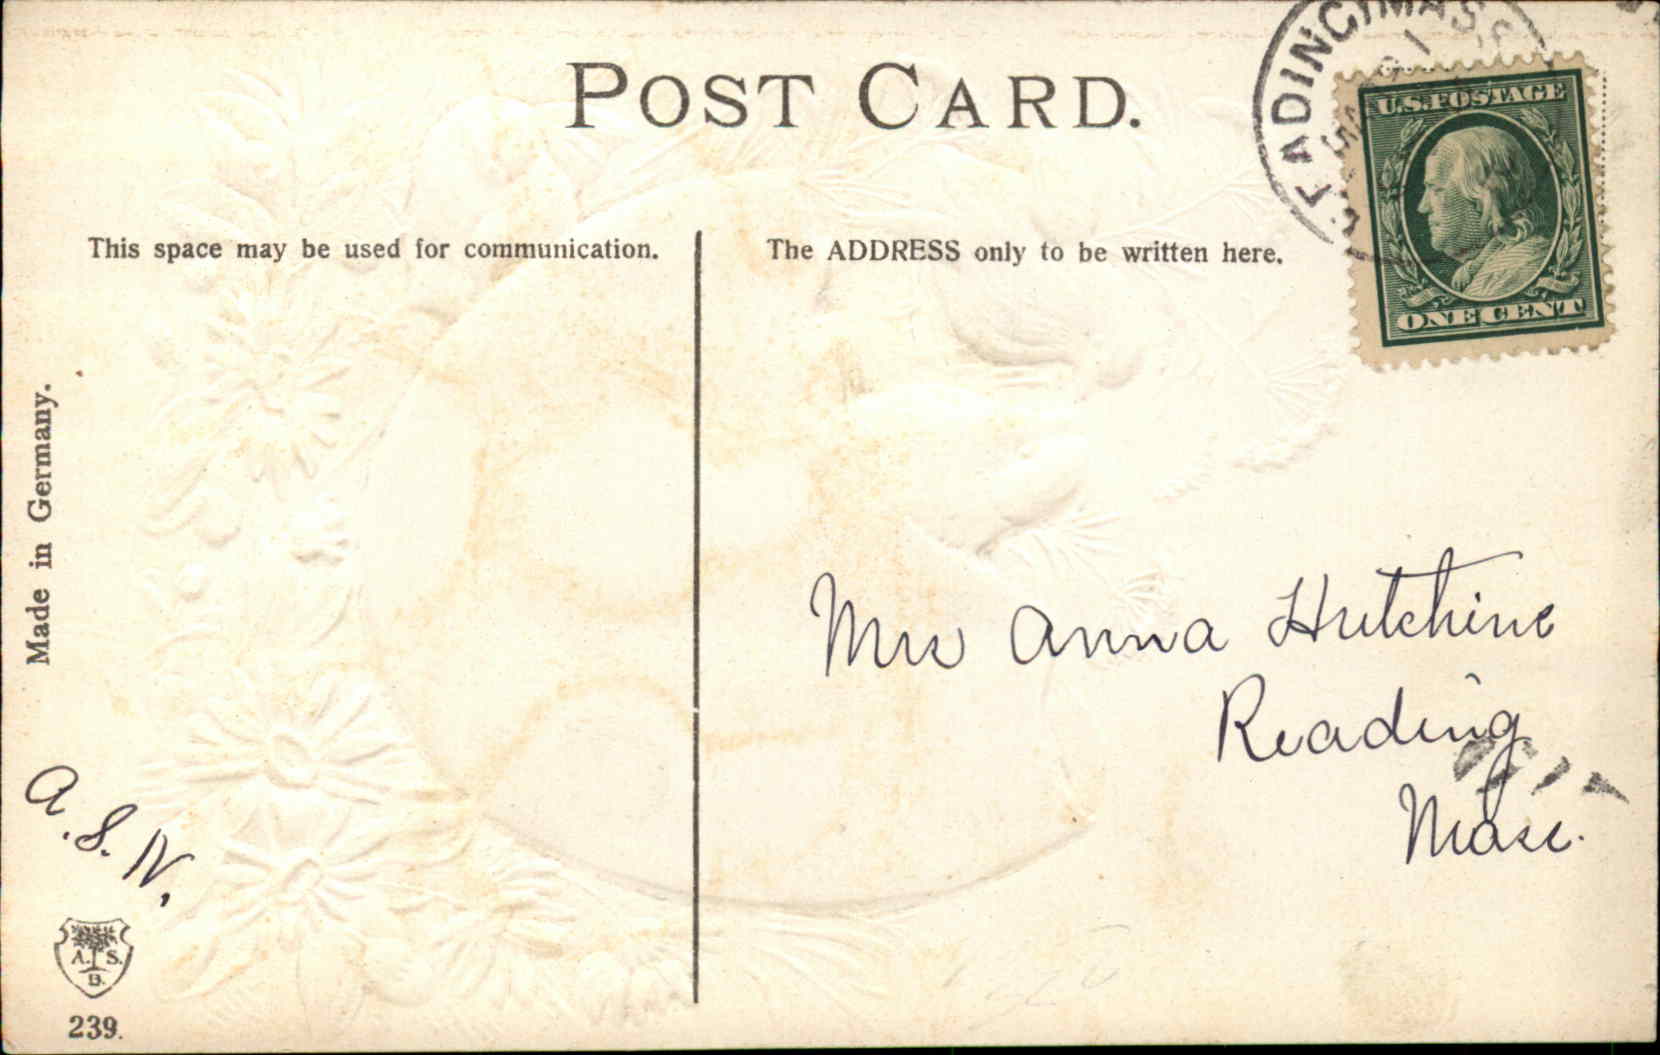 POST CARD.
READING, MASS.
U.S. POSTAGE
ONE CENT
This space may be used for communication.
The ADDRESS only to be written here.
Made in Germany.
Mrs Anna Hutchins
Reading
Mass.
A. S. N.
A. S.
B.
239.